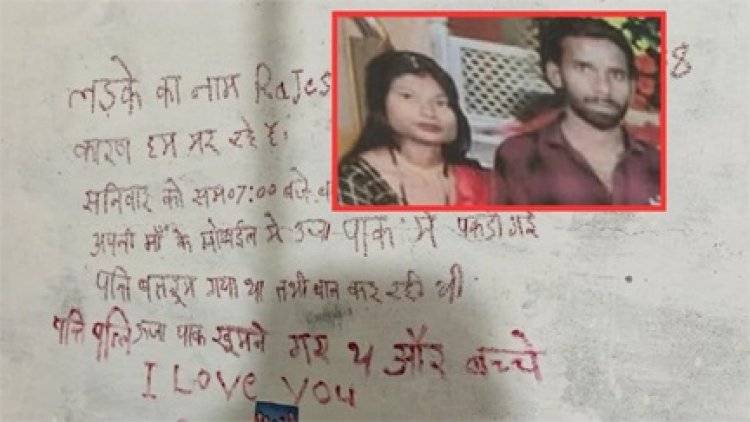 8
लड़के का नाम RaJes
कारण हम मर रहे है।
सनिवार को सम07:00 बजे
अपनी माँ के मोबाईल मे ऊर्जा पाक में पकडी गई
पत्ति बातरूम गया था तभी बात कर रही थी
पत्ति पत्नि ऊर्जा पाक घूमने गए थ और बच्चे
I Love you